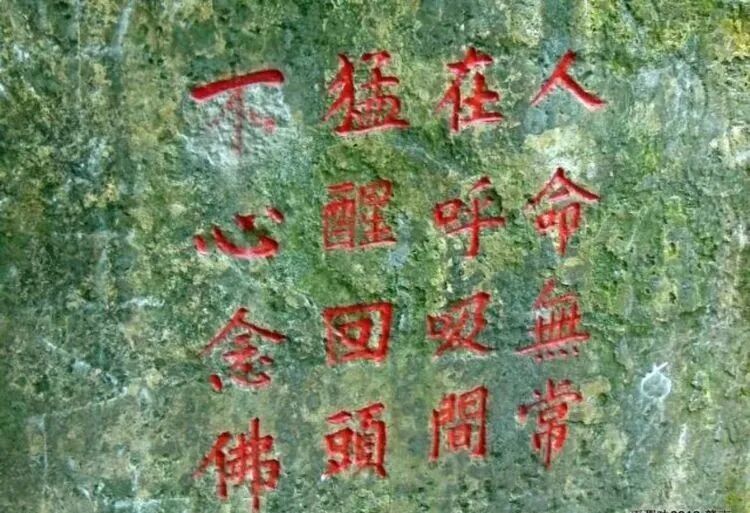 人命無常
在呼吸間
猛醒回頭
一心念佛